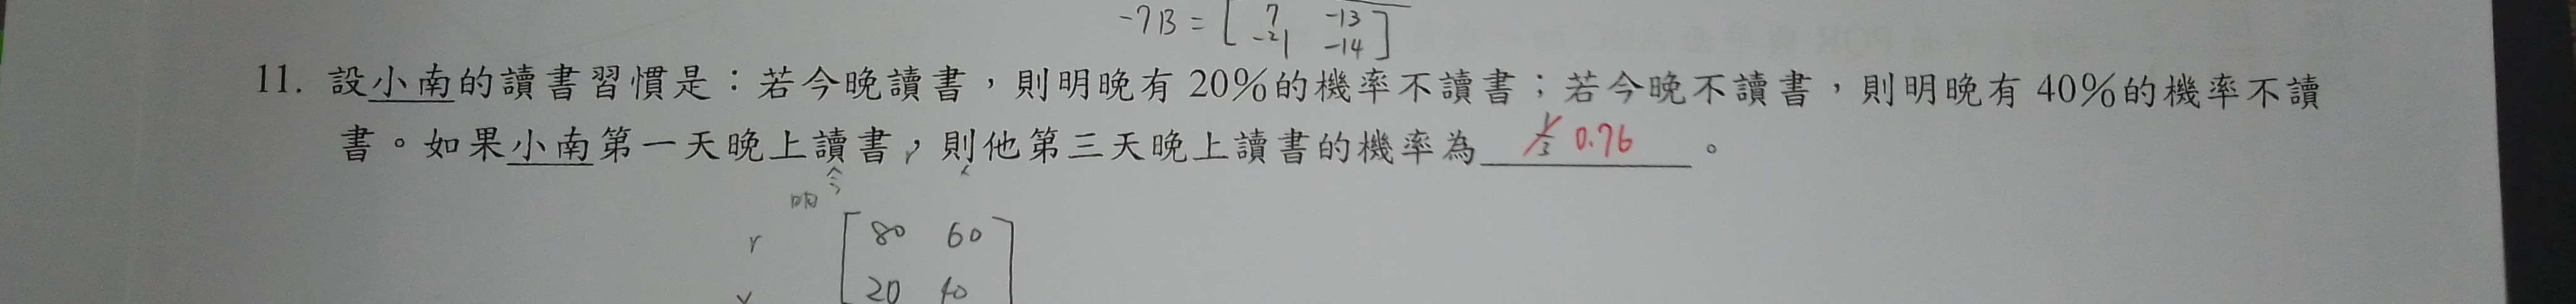 -7B = [ 7 -13
-21 -14 ]
11. 設小南的讀書習慣是：若今晚讀書，則明晚有 20%的機率不讀書；若今晚不讀書，則明晚有 40%的機率不讀
書。如果小南第一天晚上讀書，則他第三天晚上讀書的機率為 0.76 。
今
明
r [ 80 60 ]
x [ 20 40 ]